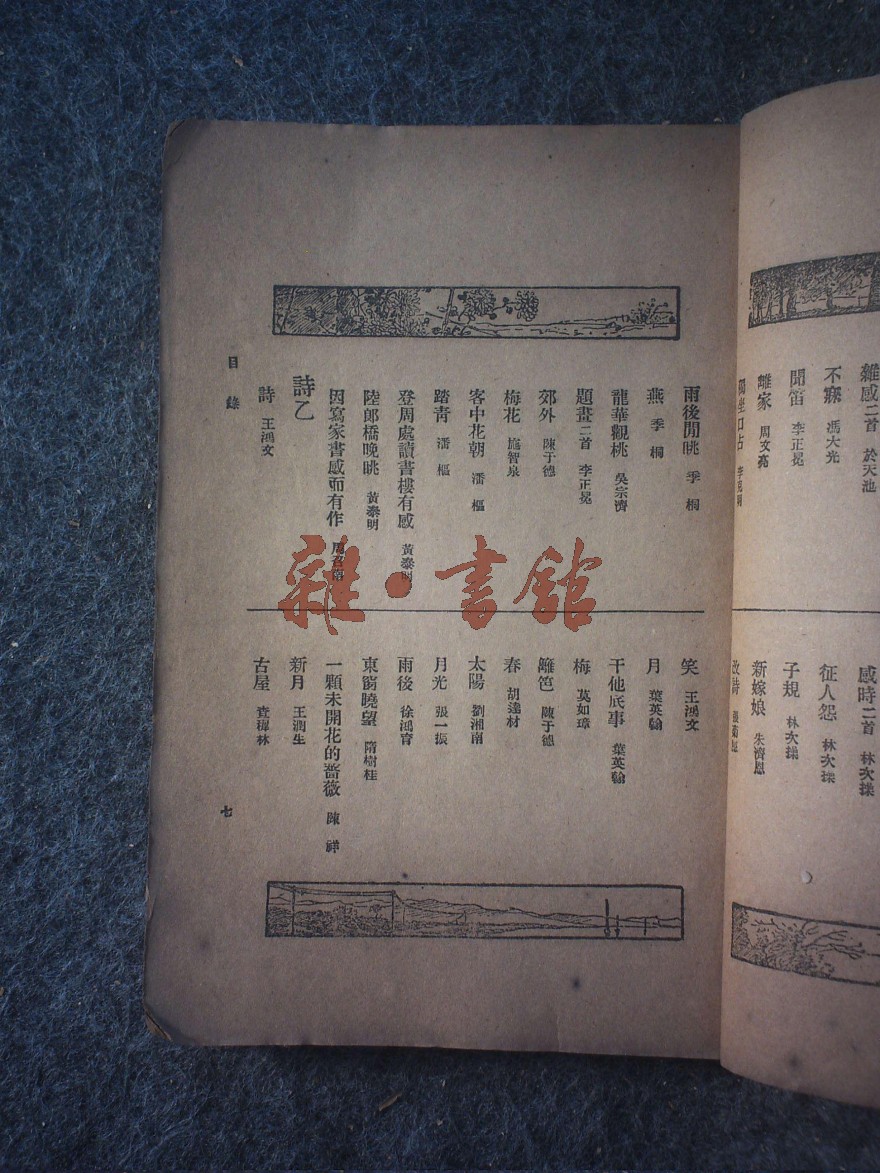 雜感二首 於天池
不寐 馮大光
聞笛 李正冕
離家 周文亮
獨坐口占
感時二首 林次揉
征人怨 林次揉
子規 林次揉
新嫁娘 朱濟恩
雨後閒眺 季桐
燕 季桐
龍華觀桃 吳宗濟
題畫二首 李正冕
郊外 陳于德
梅花 施智泉
客中花朝 潘樞
踏青 潘樞
登周處讀書樓有感 黃泰明
陸郎橋晚眺 黃泰明
因寫家書感而有作
詩乙
詩 王鴻文
笑 王鴻文
月 葉英翰
干他底事 葉英翰
梅 莫如璋
籬笆 陳于德
春 胡達材
太陽 劉湘南
月光 張一振
雨後 徐鴻育
東窗曉望 隋樹桂
一顆未開花的薔薇 陳祥
新月 王潤生
古屋 查樨林
目錄
七
雜·書館